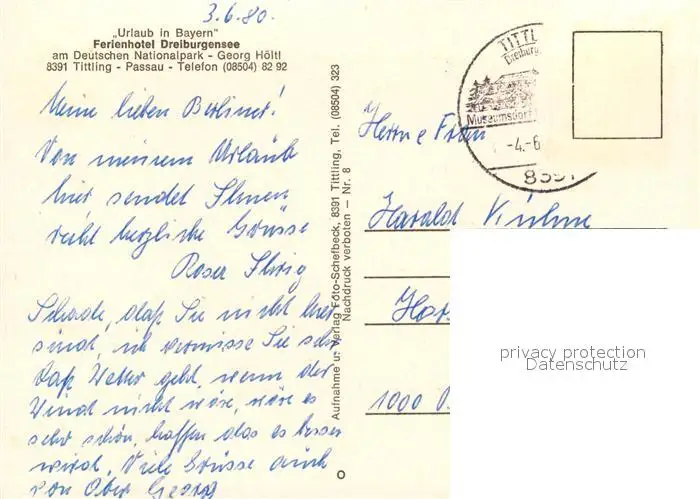 3.6.80.
„Urlaub in Bayern"
Ferienhotel Dreiburgensee
am Deutschen Nationalpark - Georg Höltl
8391 Tittling - Passau - Telefon (08504) 82 92
Meine lieben Berliner!
Von meinem Urlaub
hier sendet Ihnen
recht herzliche Grüsse
Rosa
Schade, daß Sie nicht hier
sind, ich vermisse Sie sehr
Daß Wetter geht, wenn der
Wind nicht wäre, wäre es
sehr schön, hoffen das es besser
wird. Viele Grüsse auch
von Ober Georg
Aufnahme u. Verlag Foto-Schefbeck, 8391 Tittling, Tel. (08504) 323
Nachdruck verboten — Nr. 8
TITTL
Dreiburg
Museumsdorf
-4.-6
8391
Herrn e Frau
Harald Kühne
Har
1000
privacy protection
Datenschutz